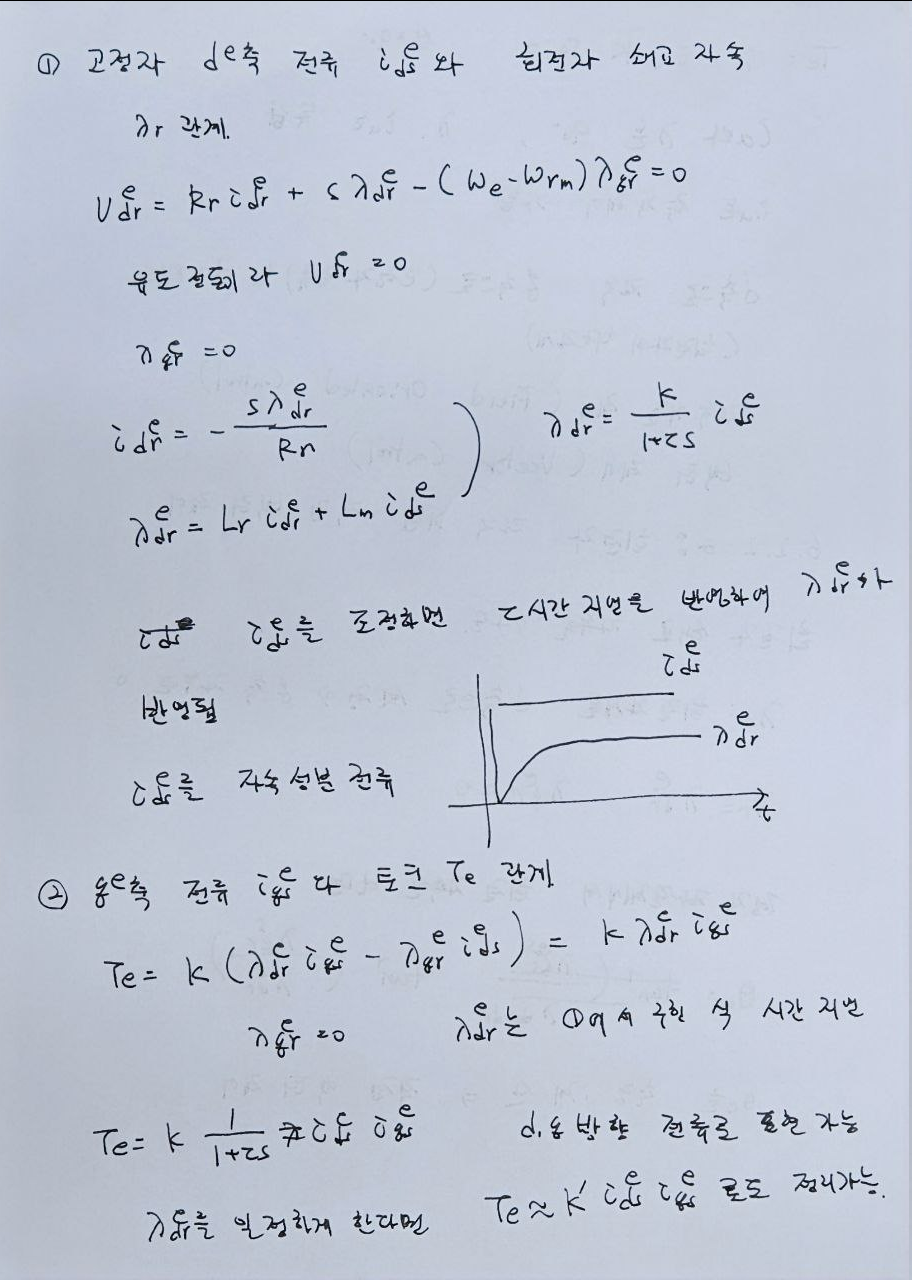 ① 고정자 dᵉ축 전류 i_ds^e 와 회전자 쇄교 자속
λr 관계.
V_dr^e = Rr i_dr^e + s λ_dr^e - (ω_e - ω_rm) λ_qr^e = 0
유도 전동기라 V_dr^e = 0
λ_qr^e = 0
i_dr^e = - s λ_dr^e / Rr
λ_dr^e = K / (1+τs) i_ds^e
λ_dr^e = Lr i_dr^e + Lm i_ds^e
i_ds^e 를 조정하면 τ시간 지연을 반영하여 λ_dr^e 가
반영됨
i_ds^e
λ_dr^e
t
i_ds^e 를 자속성분 전류
② qᵉ축 전류 i_qs^e 과 토크 Te 관계.
Te = K (λ_dr^e i_qs^e - λ_qr^e i_ds^e) = K λ_dr^e i_qs^e
λ_qr^e = 0 λ_dr^e 는 ①에서 구한 식 시간 지연
Te = K 1 / (1+τs) i_ds^e i_qs^e d, q 방향 전류로 표현 가능
λ_dr^e 를 일정하게 한다면 Te ≈ K' i_ds^e i_qs^e 로도 정리가능.